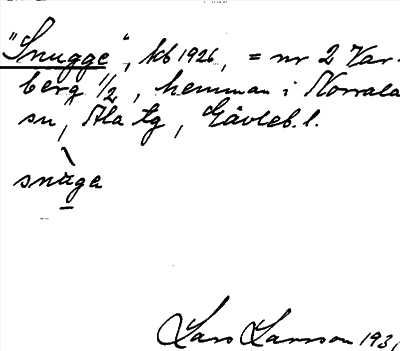 "Snugge", kb 1926, = nr 2 Var-
berg 1/2, hemman i Norrala
sn, Ala tg, Gävleb. l.
snùga
Lars Larsson 1931